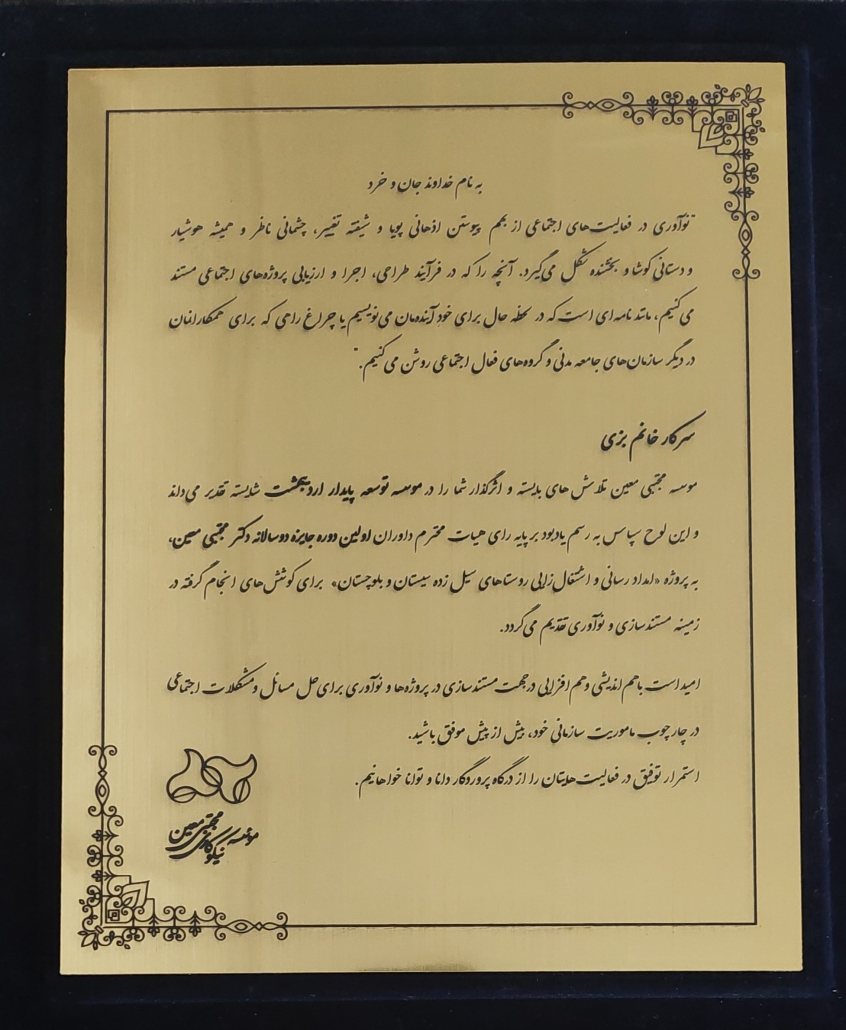 به نام خداوند جان و خرد
"نوآوری در فعالیت‌های اجتماعی از بهم پیوستن اذهانی پویا و شیفته تغییر، چشمانی ناظر و همیشه هوشیار
و دستانی کوشا و بخشنده شکل می‌گیرد. آنچه را که در فرآیند طراحی، اجرا و ارزیابی پروژه‌های اجتماعی مستند
می‌کنیم، مانند نامه‌ای است که در لحظه حال برای خود آینده‌مان می‌نویسیم یا چراغ راهی که برای همکارانمان
در دیگر سازمان‌های جامعه مدنی و گروه‌های فعال اجتماعی روشن می‌کنیم."
سرکار خانم بزی
موسسه مجتبی معین تلاش های بایسته و اثرگذار شما را در موسسه توسعه پایدار اردیبهشت شایسته تقدیر می‌داند
و این لوح سپاس به رسم یادبود بر پایه رای هیات محترم داوران اولین دوره جایزه دوسالانه دکتر مجتبی معین،
به پروژه «امداد رسانی و اشتغال‌زایی روستاهای سیل زده سیستان و بلوچستان» برای کوشش‌های انجام گرفته در
زمینه مستندسازی و نوآوری تقدیم می‌گردد.
امید است با هم اندیشی و هم افزایی در جهت مستندسازی در پروژه‌ها و نوآوری برای حل مسائل و مشکلات اجتماعی
در چارچوب ماموریت سازمانی خود، بیش از پیش موفق باشید.
استمرار توفیق در فعالیت هایتان را از درگاه پروردگار دانا و توانا خواهانیم.
موسسه نیکوکاری مجتبی معین